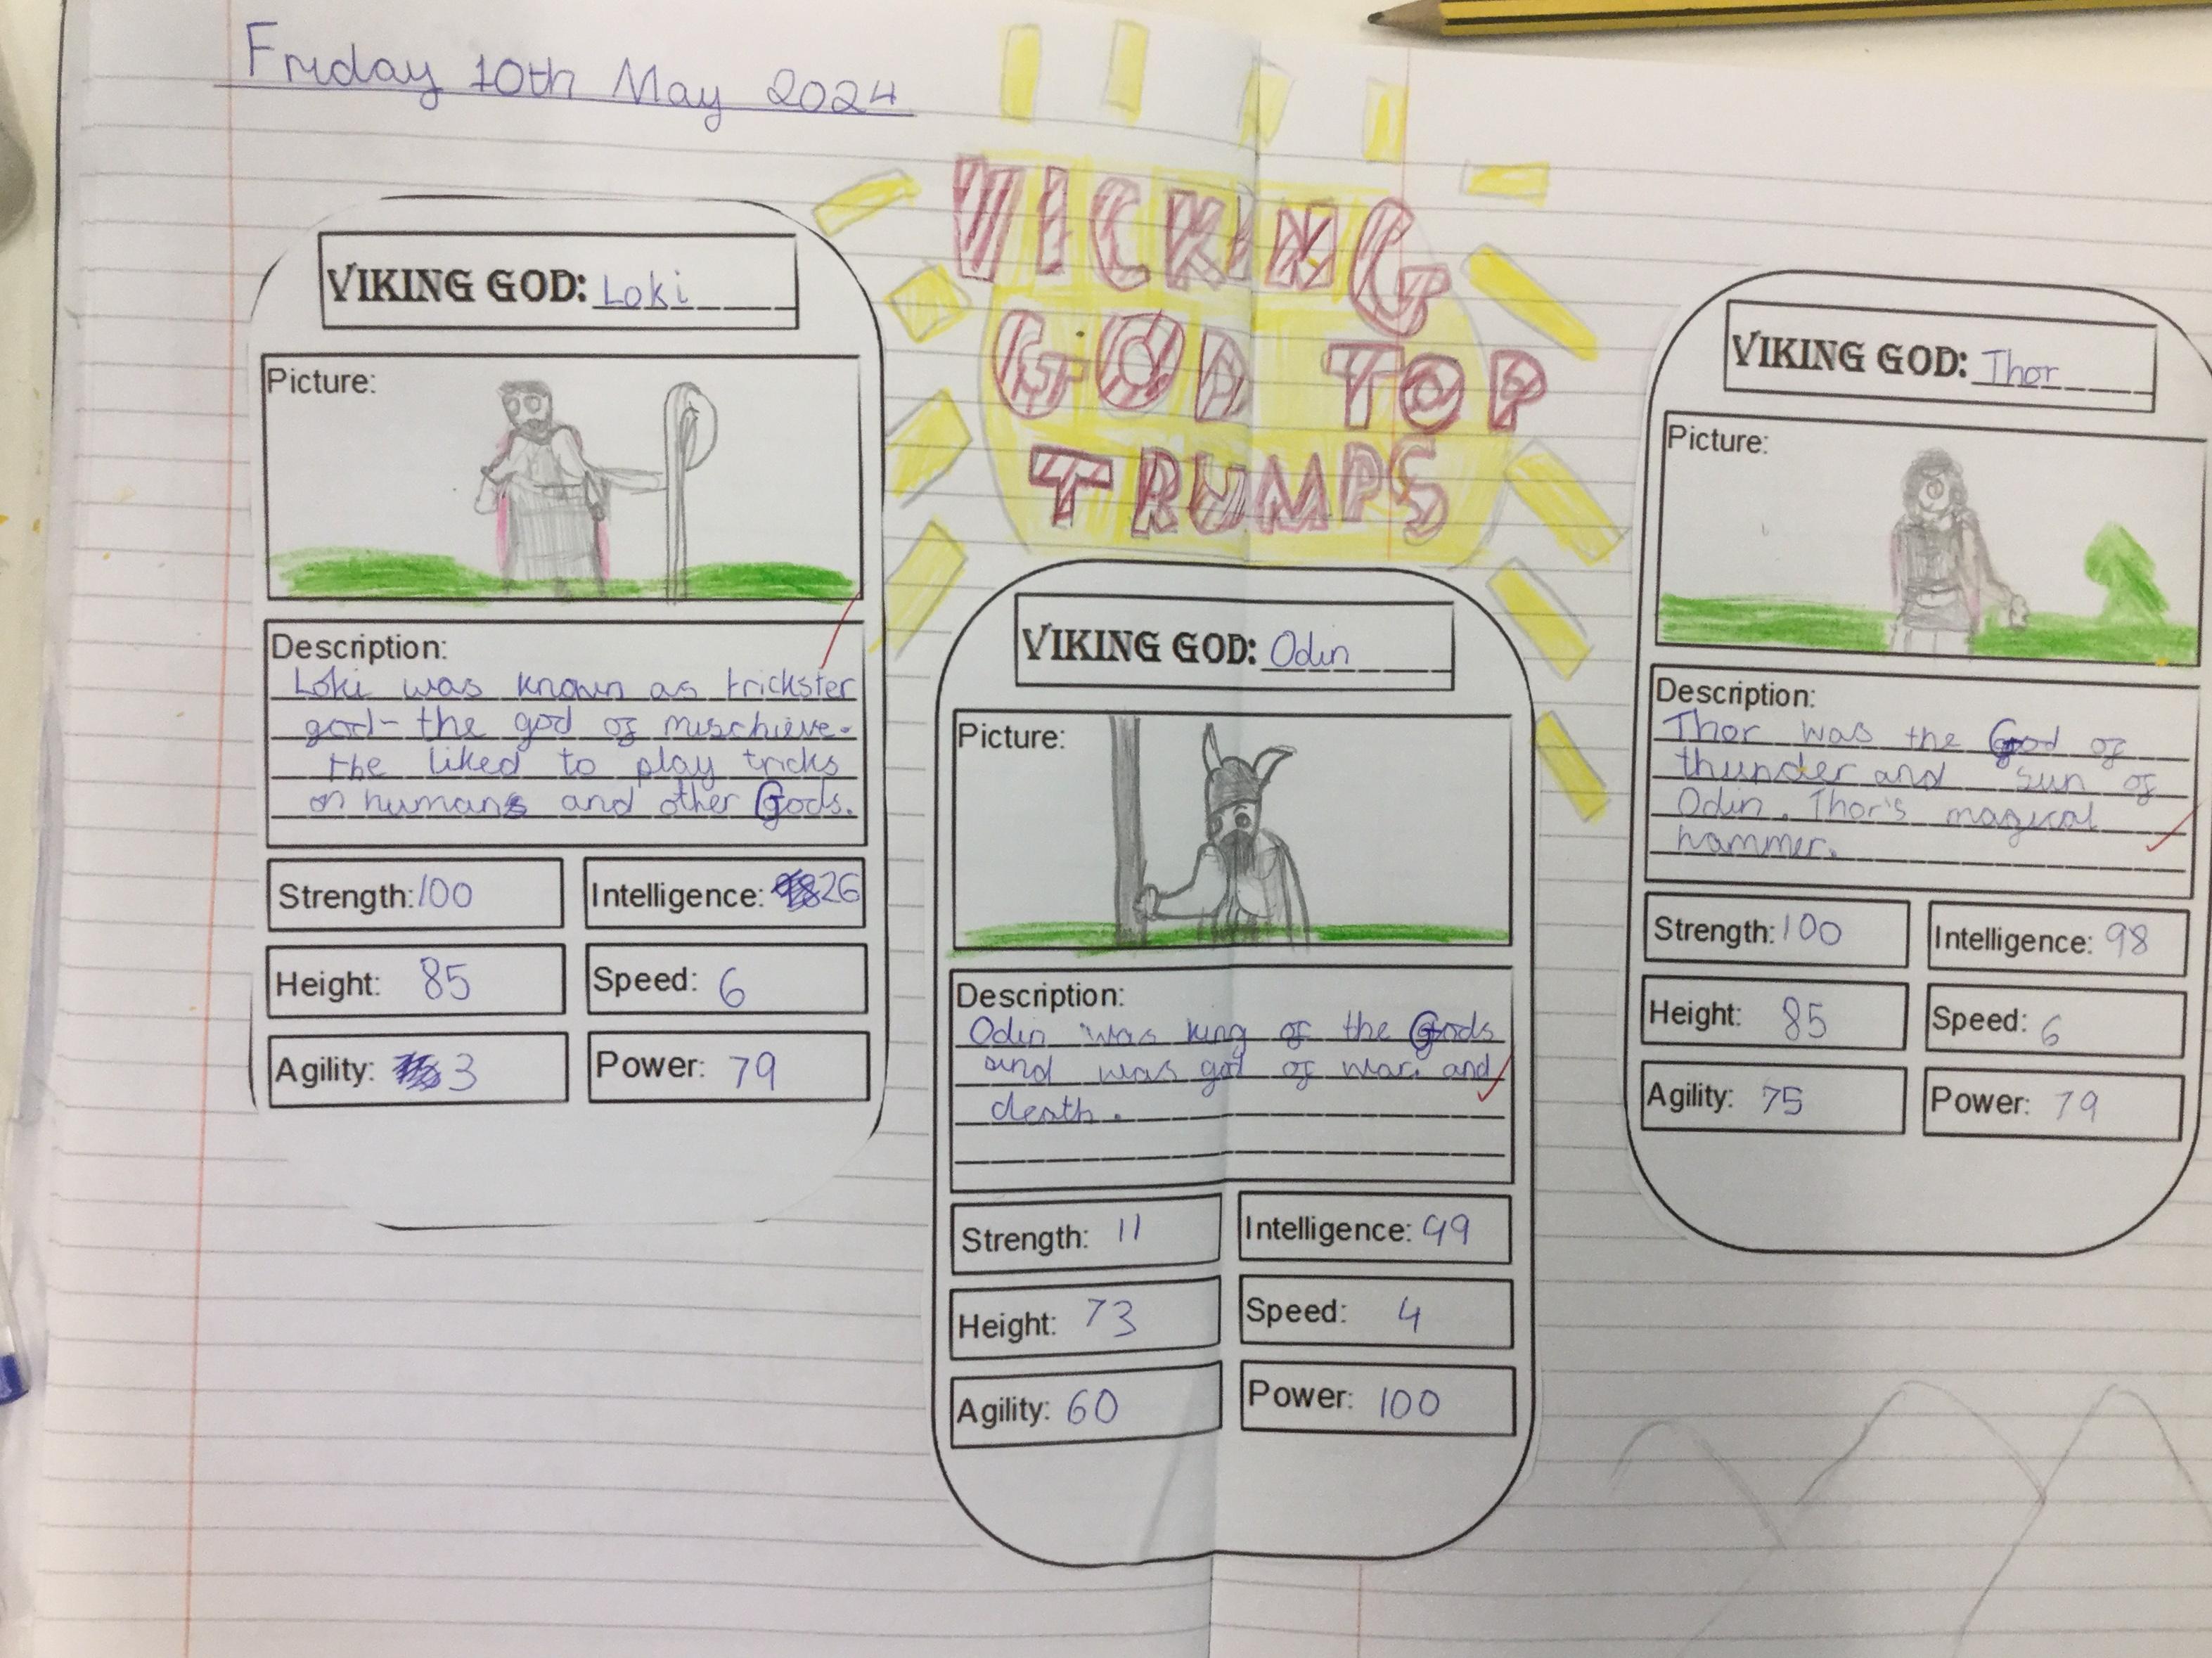 Friday 10th May 2024
VICKING
GOD TOP
TRUMPS
VIKING GOD: Loki
Picture:
Description:
Loki was known as trickster
god- the god of mischieve.
the liked to play tricks
on humans and other Gods.
Strength: 100
Intelligence: 26
Height: 85
Speed: 6
Agility: 3
Power: 79
VIKING GOD: Odin
Picture:
Description:
Odin was king of the Gods
and was god of war. and
death.
Strength: 11
Intelligence: 99
Height: 73
Speed: 4
Agility: 60
Power: 100
VIKING GOD: Thor
Picture:
Description:
Thor was the God of
thunder and sun of
Odin. Thor's magical
hammer.
Strength: 100
Intelligence: 98
Height: 85
Speed: 6
Agility: 75
Power: 79